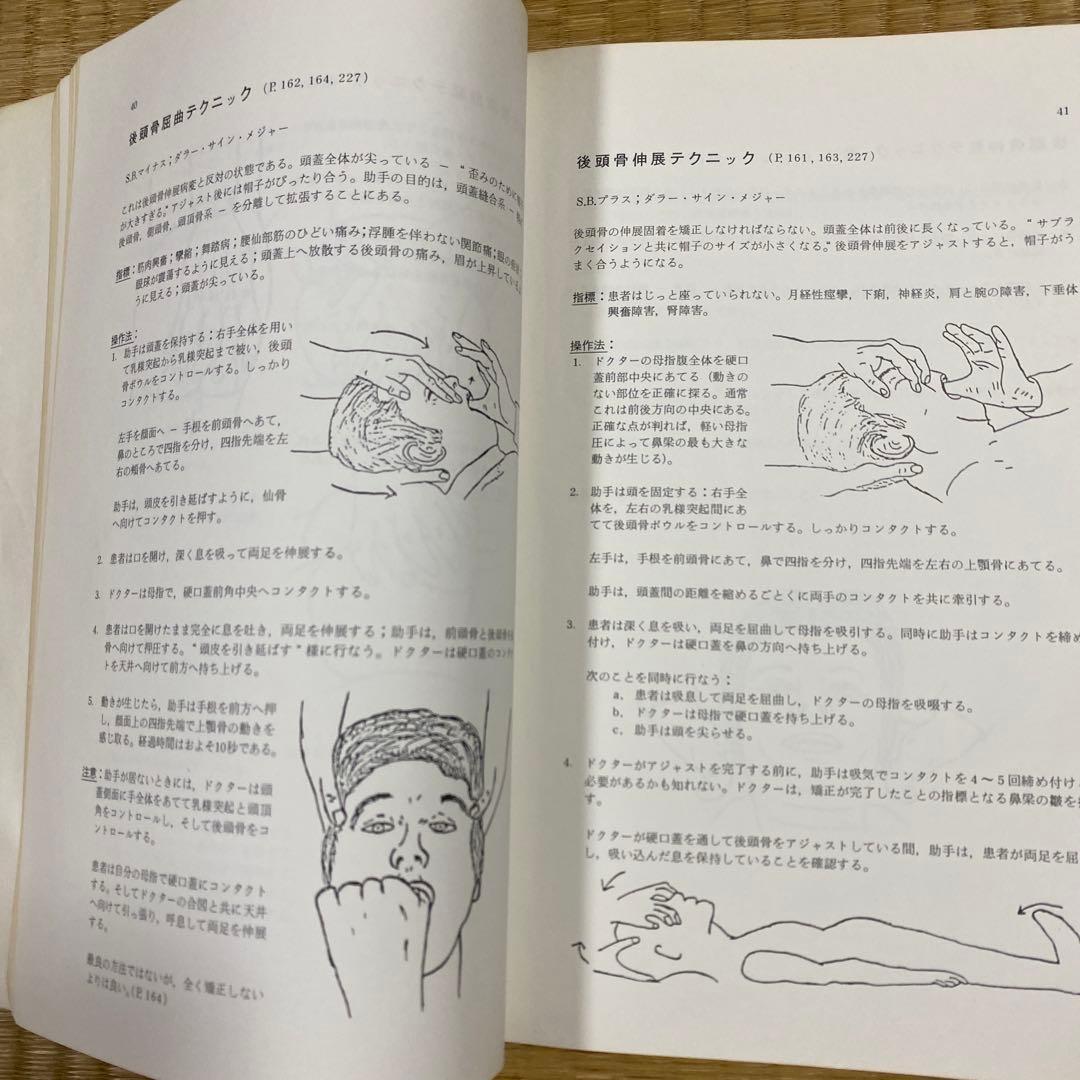 40
後頭骨屈曲テクニック (P. 162, 164, 227)
S.B.マイナス；ダラー・サイン・メジャー
これは後頭骨伸展病変と反対の状態である。頭蓋全体が尖っている － “歪みのために
が大きすぎる。”アジャスト後には帽子がぴったり合う。助手の目的は，頭蓋縫合系 －
後頭骨，側頭骨，頭頂骨系 － を分離して拡張することにある。
指標：筋肉興奮；攣縮；舞踏病；腰仙部筋のひどい痛み；浮腫を伴わない関節痛；眼の
眼球が震盪するように見える；頭蓋上へ放散する後頭骨の痛み，眉が上昇している
うに見える；頭蓋が尖っている。
操作法：
1. 助手は頭蓋を保持する：右手全体を用い
て乳様突起から乳様突起まで被い，後頭
骨ボウルをコントロールする。しっかり
コンタクトする。
左手を顔面へ － 手根を前頭骨へあて，
鼻のところで四指を分け，四指先端を左
右の頬骨へあてる。
助手は，頭皮を引き延ばすように，仙骨
へ向けてコンタクトを押す。
2. 患者は口を開け，深く息を吸って両足を伸展する。
3. ドクターは母指で，硬口蓋前角中央へコンタクトする。
4. 患者は口を開けたまま完全に息を吐き，両足を伸展する；助手は，前頭骨と後頭骨を
骨へ向けて押圧する。“頭皮を引き延ばす”様に行なう。ドクターは硬口蓋のコンタ
トを天井へ向けて前方へ持ち上げる。
5. 動きが生じたら，助手は手根を前方へ押
し，顔面上の四指先端で上顎骨の動きを
感じ取る。経過時間はおよそ10秒である。
注意：助手が居ないときには，ドクターは頭
蓋側面に手全体をあてて乳様突起と頭頂
角をコントロールし，そして後頭骨をコ
ントロールする。
患者は自分の母指で硬口蓋にコンタクト
する。そしてドクターの合図と共に天井
へ向けて引っ張り，呼息して両足を伸展
する。
最良の方法ではないが，全く矯正しない
よりは良い。(P. 164)
41
後頭骨伸展テクニック (P. 161, 163, 227)
S.B.プラス；ダラー・サイン・メジャー
後頭骨の伸展固着を矯正しなければならない。頭蓋全体は前後に長くなっている。“サブラ
クセイションと共に帽子のサイズが小さくなる。”後頭骨伸展をアジャストすると，帽子がう
まく合うようになる。
指標：患者はじっと座っていられない。月経性痙攣，下痢，神経炎，肩と腕の障害，下垂体
興奮障害，腎障害。
操作法：
1. ドクターの母指腹全体を硬口
蓋前部中央にあてる（動きの
ない部位を正確に探る。通常
これは前後方向の中央にある。
正確な点が判れば，軽い母指
圧によって鼻梁の最も大きな
動きが生じる）。
2. 助手は頭を固定する：右手全
体を，左右の乳様突起間にあ
てて後頭骨ボウルをコントロールする。しっかりコンタクトする。
左手は，手根を前頭骨にあて，鼻で四指を分け，四指先端を左右の上顎骨にあてる。
助手は，頭蓋間の距離を縮めるごとくに両手のコンタクトを共に牽引する。
3. 患者は深く息を吸い，両足を屈曲して母指を吸引する。同時に助手はコンタクトを締め
付け，ドクターは硬口蓋を鼻の方向へ持ち上げる。
次のことを同時に行なう：
a. 患者は吸息して両足を屈曲し，ドクターの母指を吸啜する。
b. ドクターは母指で硬口蓋を持ち上げる。
c. 助手は頭を尖らせる。
4. ドクターがアジャストを完了する前に，助手は吸気でコンタクトを4～5回締め付け
必要があるかも知れない。ドクターは，矯正が完了したことの指標となる鼻梁の皺を
す。
ドクターが硬口蓋を通して後頭骨をアジャストしている間，助手は，患者が両足を屈
し，吸い込んだ息を保持していることを確認する。